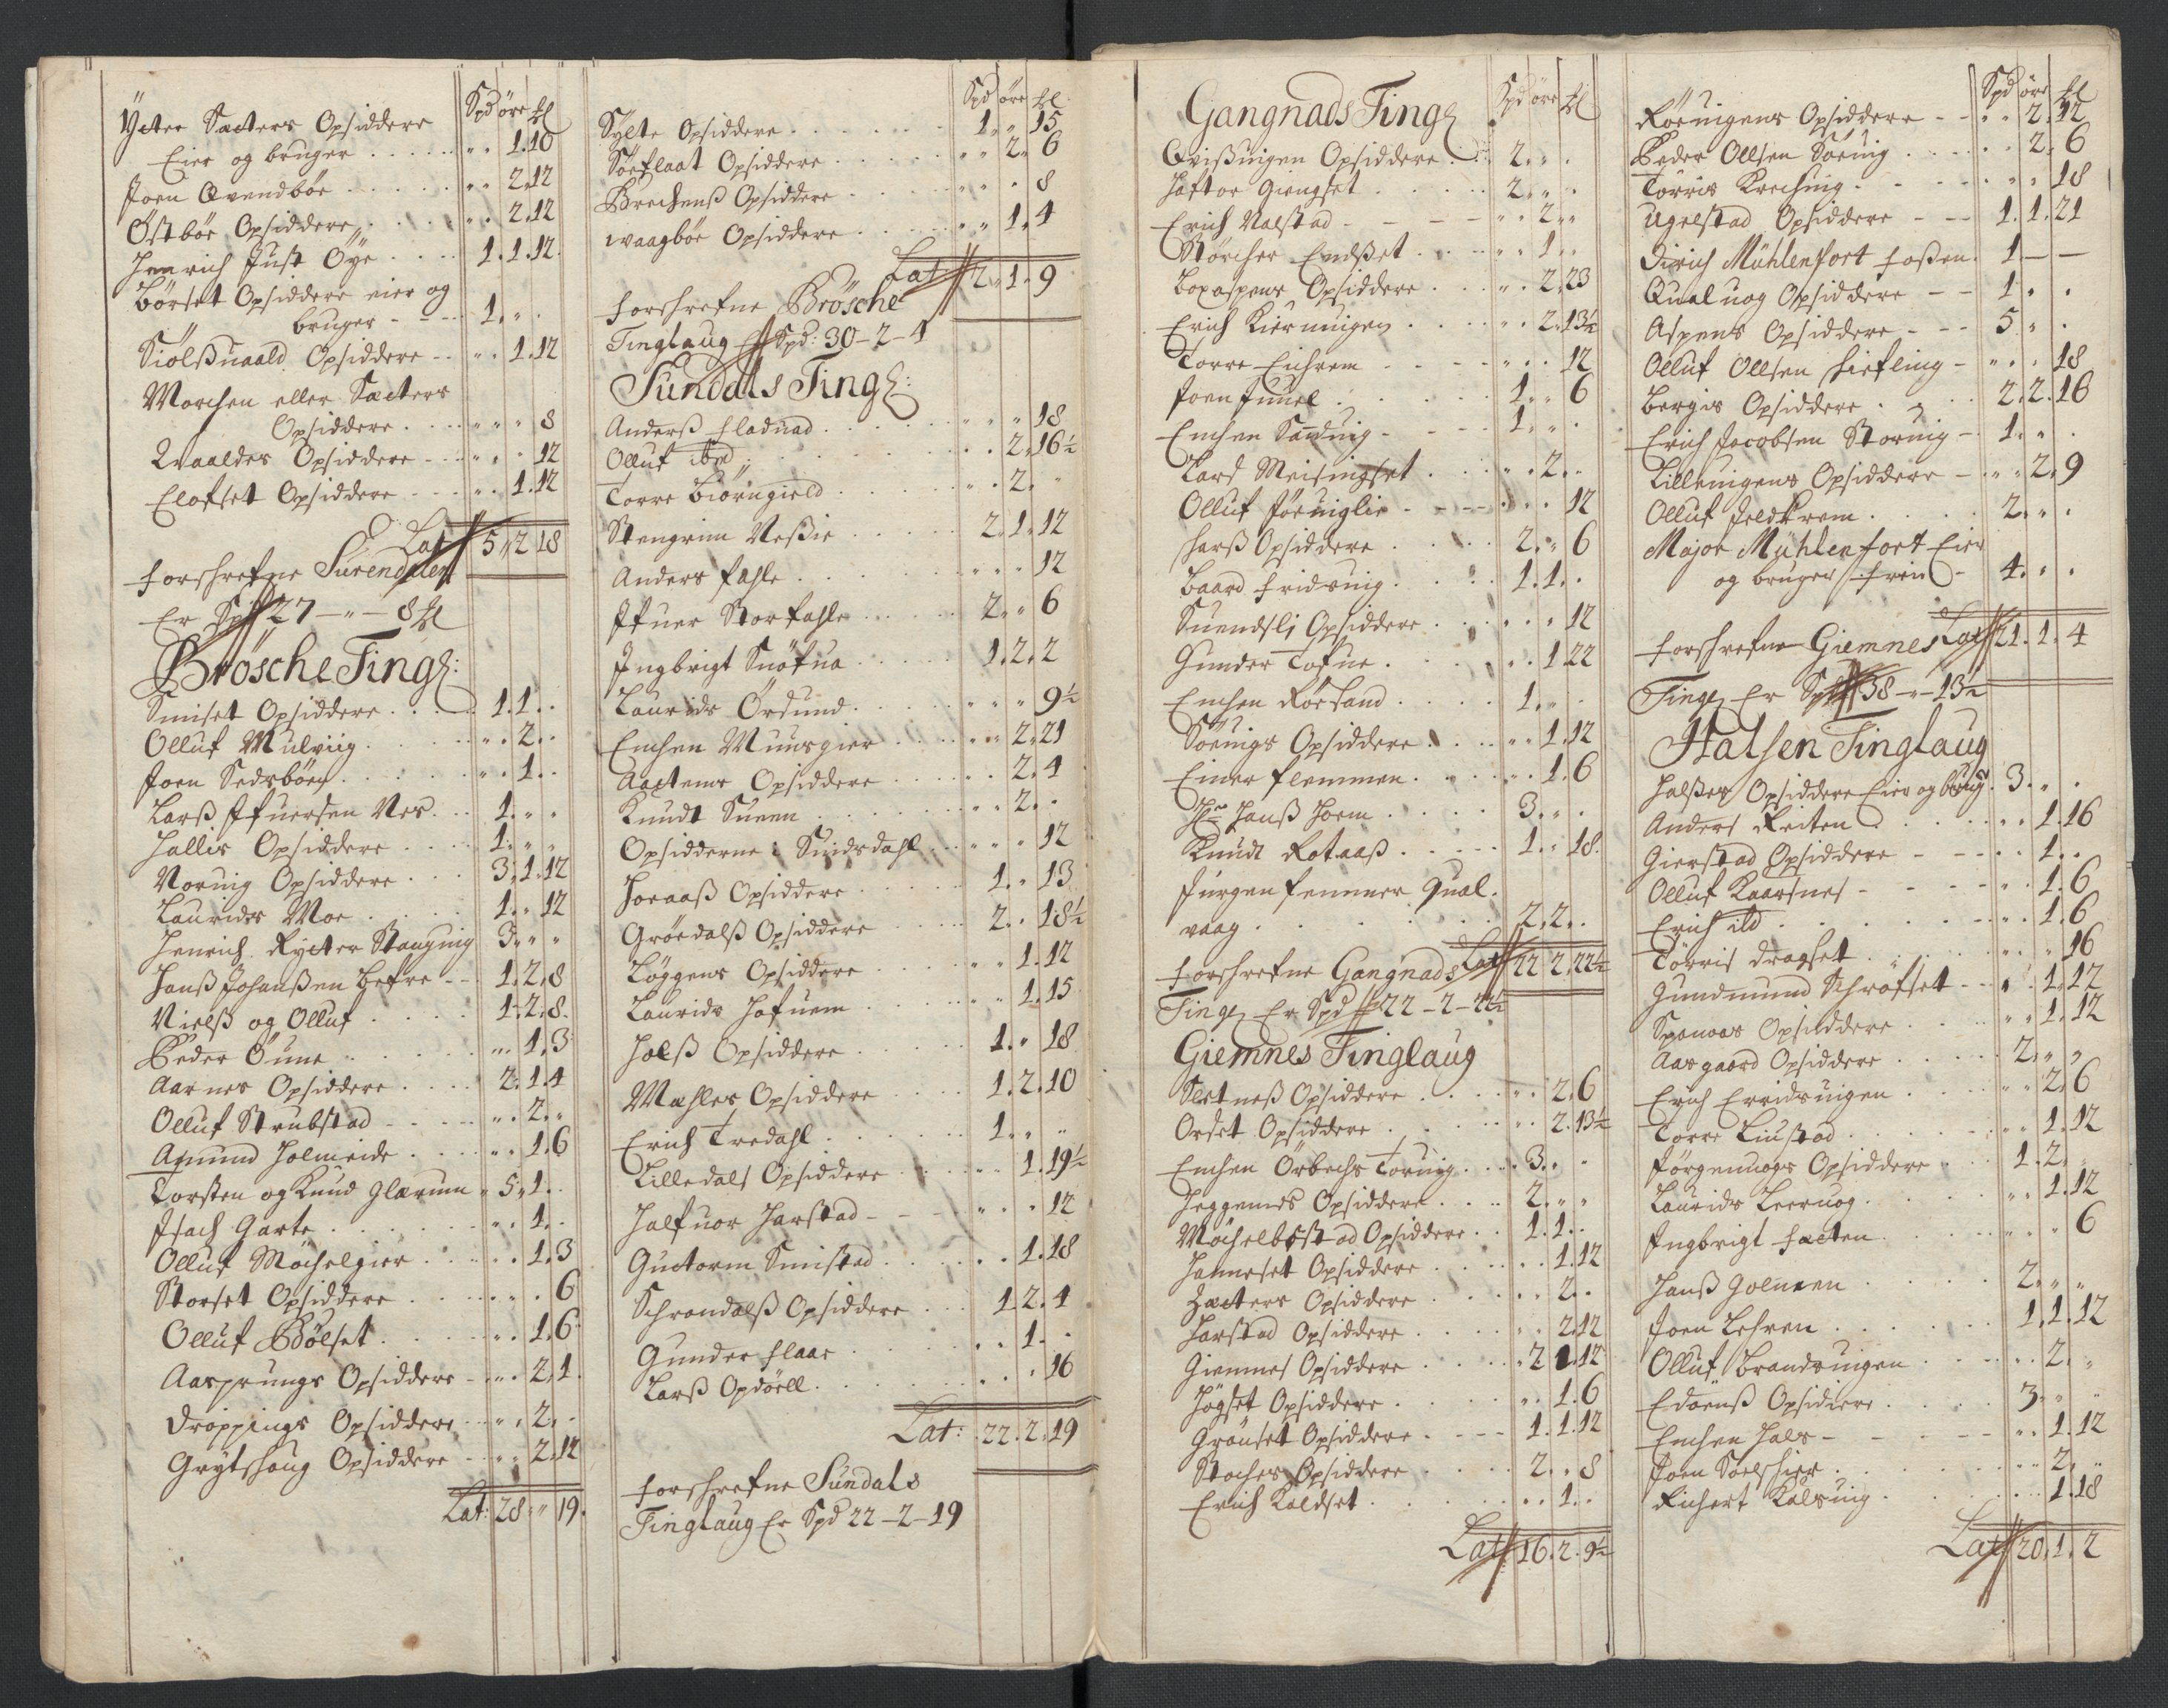 Spd öre
Ÿtter Sæters Opsiddere
Eier og bruger . . . . „ . 1.10
Joen Qvendböe . . . . „ . 2.12
Östböe Opsiddere . . . „ . 2.12
Henrich Just Öÿe . . . 1.1.12
Börset Opsiddere eier og
bruger - - - 1. „ .
Siölsuaald Opsiddere - - „ . 1.12
Morchen eller Sæters
Opsiddere . . . „ „ . 8
Waaldes Opsiddere - - „ . 12
Elafset Opsiddere - - - . 1.12
Lat 5 „ 2 18
forschrefne Surendalen
Er Spd 27 – „ – 8
Brösche Ting:
Smiset Opsiddere . . . 1.1 . .
Olluf Mulviig . . . . . . 2 . .
Joen Sedsböen . . . . „ . 1 . .
Larß Ifuersen Nes . . . 1. „ „
Hallis Opsiddere . . . . 1. „ „
Noruig Opsiddere . . . 3.1.12
Laurids Moe . . . . . 1. „ 12
Henrich Rÿtter Stanguig 3 „ „ „
Hanß Johanßen Befre - - 1.2.8
Nielß og Olluf . . . . 1.2.8
Peder Öune . . . . . . . „ . 1.3
Aarnes Opsiddere . . . . 2.1.4
Olluf Strubstad - - - . „ . 2 . „
Amund Holmeide . . . . „ . 1.6
Torsten og Knud Glærum „ 5 „ 1 . .
Isach Garte . . . . . . „ . 1 . .
Olluf Möchelgier . . . . . 1.3
Storset Opsiddere . . . . . . 6
Olluf Bölset . . . . „ . 1.6
Aasprungs Opsiddere - „ . 2.1
Droppings Opsiddere - - „ . 2 . .
Grÿtshaug Opsiddere - - „ . 2.12
Lat: 28 „ „ 19.
Spd öre
Sÿlte Opsiddere . . . . . . 1 „ „ 15
Söeflaat Opsiddere . . . . . „ „ 2. 6
Brechens Opsiddere . . . . . „ . 8
waagböe Opsiddere . . . . . „ „ 1.4
Lat 2. 1. 9
forschrefne Brösche
Tinglaug Er Spd: 30–2–4
Sundals Ting:
Anderß fladuad . . . . . . „ „ 18
Olluf ibid . . . . . . . . 2.16½
Torre Biörngield . . . . „ . 2. „
Stengrim Neßie . . . . . 2.1.12
Anders fahle . . . . . . . . „ „ 12
Ifuer Storfahle . . . . . 2 „ „ 6
Ingbrigt Snöfua . . . . . 1.2.2
Laurids Örsund . . . . . „ „ 9½
Enchen Muusgier . . . . . „ „ 2.21
Aaxtems Opsiddere . . . . . . 2.4
Knudt Sueen . . . . . . . . 2 . .
Opsidderne i Snidsdahl . . . „ „ 12
Horaaß Opsiddere . . . . . 1. „ 13
Gröedalß Opsiddere . . . . 2. . 18½
Löggens Opsiddere . . . . . „ 1.12
Laurids Hafuem . . . . . . „ 1.15
Holß Opsiddere . . . . . . 1. „ 18
Mæhles Opsiddere . . . . . 1.2.10
Erich Tredahl . . . . . . . 1. „ „
Lilledals Opsiddere . . . . . . 1.19½
Halfuor Harstad - - - - „ . . 12
Guttorm Smistad . . . . . . 1.18
Schrondalß Opsiddere . . . 1 2.4
Gunder flaae . . . . . . . 1. .
Larß Opdöell . . . . . . . . . 16
Lat: 22.2.19
forschrefne Sundals
Tinglaug Er Spd 22–2–19
Gangnads Ting
Spd öre
Qvißuigen Opsiddere . . . 2. „ .
Haftor Giengset . . . . . 2. „ .
Erich Nalstad - - - - - „ . 2 „ „
Störcher Endßet . . . . . . 1 . .
Boxaspens Opsiddere . . . „ . 2.23
Erich Kieruuigen . . . . „ . 2.13½
Torre Eichrem . . . . - . „ . . 12
Joen Juuel . . . . . . . 1. „ 6
Enchen Sanduig - - - - 1. „ .
Lars Meisingset . . . „ . 2. .
Olluf föeruiglie - - - - . . . 12
Harß Opsiddere . . . . 2. „ 6
Baard fridsuig . . . . . 1.1. .
Suendsli Opsiddere . . . . . „ 12
Gunder Tofue . . . . . . . 1 22
Enchen Röesand . . . . . 1. „ .
Söeuigs Opsiddere . . . . „ . 1.12
Einer flemmen . . . . . . . 1.6
Hr: Hanß Hoem . . . . . 3. „ .
Knudt Rotaaß . . . . . 1. „ 18.
Jürgen femmer Qual.
vaag . . . . . . . . 2.2. .
forschrefne Gangnads Lat 22 2.22½
Ting Er Spd 22–2–22½
Giemnes Tinglaug
Sletneß Opsiddere . . . . „ . 2.6
Orset Opsiddere . . . . . . 2.13½
Enchen Örbechs Toruig . . . 3. „ .
Heggemes Opsiddere . . . 2. „ „
Möchelbostad Opsiddere . . 1.1. .
Hammeset Opsiddere . . . . . 1.12
Zæters Opsiddere . . . . . 2. .
Harstad Opsiddere . . . . . . 2.12
Giemnes Opsiddere . . . . . 2 1.12
Högset Opsiddere . . . . . „ . 1.6
Grönset Opsiddere . . . - - 1.1.12
Stoches Opsiddere . . . . 2. „ 8
Erich Kaldset . . . . . . . . 1. .
Lat 16.2.9½
Spd öre
Röeuigens Opsiddere - - „ . 2.12
Peder Ollsen Söeuig . . . . . . 2.6
Törris Krechuig . . . . - - . „ „ 18
Ugelstad Opsiddere - - - 1.1.21
Dirich Mühlenfort foßen. 1 — —
Qualuog Opsiddere - - 1 . .
Aspens Opsiddere - - - 5. „ .
Olluf Ollsen Hiefling - „ . . 18
Bergis Opsiddere . . . . 2.2.16
Erich Jacobsen Storuig - 1. „ .
Lilleuigens Opsiddere - . „ „ 2.9
Olluf Jeldkrem . . . . . 2. „ .
Major Mühlenfort Eier
og bruger frei - 4. „ .
Lat 21.1.4
forschrefne Giemnes
Ting Er Spd 38–„–13½
Halsen Tinglaug
Halßes Opsiddere Eier og brug. 3. „ .
Anders Reiten . . . . . . „ . 1.16
Gierstad Opsiddere - - - . . 1. .
Olluf Kaarsnes - - - - - „ . 1.6
Erich ild . . . . . . . „ . 1.6
Törris Dragset . . . . . . . „ 16
Gundmund Schrafset - - - . 1.12
Spanaas Opsiddere . . . . „ . 1.12
Aasgaard Opsiddere . . . . 2. „ „
Erich Erridsuigen . . . . . „ „ 2.6
Torre Liustad . . . . . . „ „ 1.12
Jörgenuogs Opsiddere . . . 1.2. .
Laurids Leeruog . . . . . . . „ 1.12
Ingbrigt Sæten . . . . . . „ . . 6
Hanß Golmeen . . . . . . 2. „ „
Joen Lehren . . . . . . . 1.1.12
Olluf Brandsuigen . . . . . . 2. „
Edöenß Opsidiere . . . . . 3 „ „
Enchen Hals - - - - - - „ . 1.12
Joen Soelschier . . . . . . „ 2. „
Richert Kalsuig . . . . . . . . 1.18
Lat 20.1.2